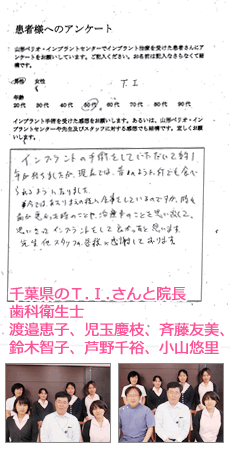 患者様へのアンケート
山形ペリオ・インプラントセンターでインプラント治療を受けた患者さんに
アンケートをお願いしています。ご記入ください。お名前は記入なさらなくて結
構です。
男性 女性 T.I
年齢
20代 30代 40代 50代 60代 70代 80代 90代
インプラント手術を受けた感想をお願いします。あるいは、山形ペリオ・イン
プラントセンターや先生及びスタッフに対する感想でも結構です。宜しくお願
いします。
インプラントの手術をしていただいて約1
年が経ちましたが、現在では、昔のように何でも食べ
られるようになりました。
思いきってインプラントをして良かったと思います。
先生他スタッフの皆様に感謝しております。
千葉県のT.I.さんと院長
歯科衛生士
渡邉恵子、児玉慶枝、斉藤友美、
鈴木智子、芦野千裕、小山悠里